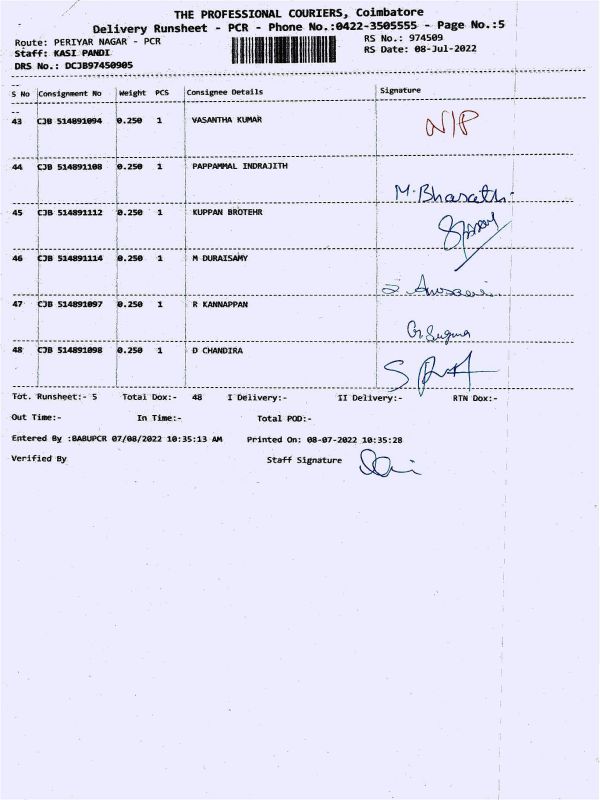 THE PROFESSIONAL COURIERS, Coimbatore
Delivery Runsheet - PCR - Phone No.:0422-3505555 - Page No.:5
Route: PERIYAR NAGAR - PCR RS No.: 974509
Staff: KASI PANDI RS Date: 08-Jul-2022
DRS No.: DCJB97450905
S No Consignment No Weight PCS Consignee Details Signature
43 CJB 514891094 0.250 1 VASANTHA KUMAR N/P
44 CJB 514891108 0.250 1 PAPPAMMAL INDRAJITH M. Bharath
45 CJB 514891112 0.250 1 KUPPAN BROTEHR
46 CJB 514891114 0.250 1 M DURAISAMY
47 CJB 514891097 0.250 1 R KANNAPPAN
48 CJB 514891098 0.250 1 D CHANDIRA
Tot. Runsheet:- 5 Total Dox:- 48 I Delivery:- II Delivery:- RTN Dox:-
Out Time:- In Time:- Total POD:-
Entered By :BABUPCR 07/08/2022 10:35:13 AM Printed On: 08-07-2022 10:35:28
Verified By Staff Signature